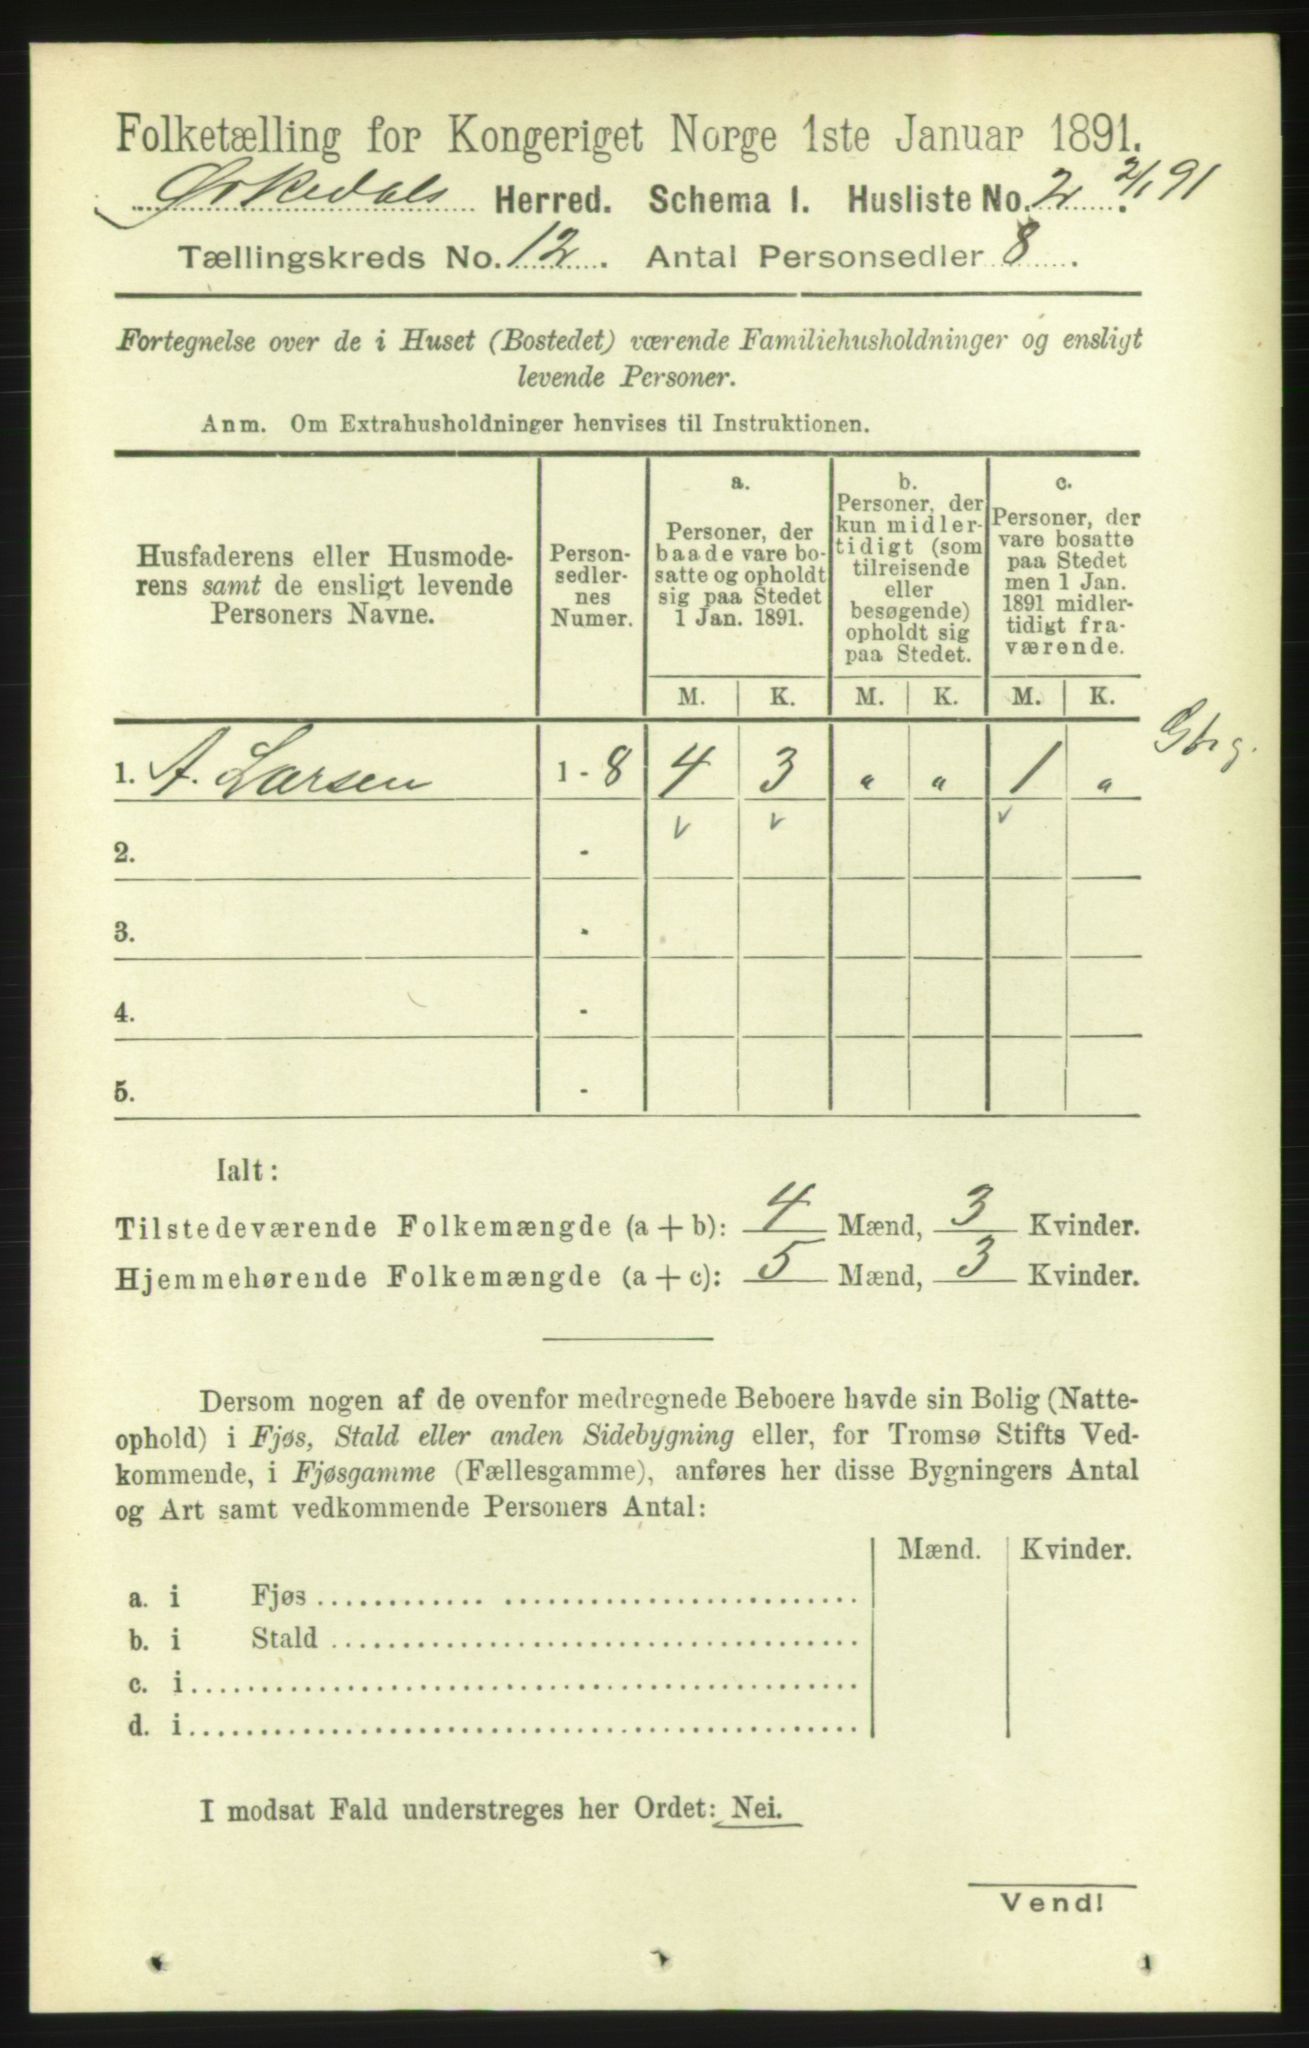 Folketælling for Kongeriget Norge 1ste Januar 1891.
Ørkedals Herred. Schema 1. Husliste No. 2. 2/1 91
Tællingskreds No. 12. Antal Personsedler 8.
Fortegnelse over de i Huset (Bostedet) værende Familiehusholdninger og ensligt
levende Personer.
Anm. Om Extrahusholdninger henvises til Instruktionen.
Husfaderens eller Husmode-
rens samt de ensligt levende
Personers Navne.
Person-
sedler-
nes
Numer.
a.
Personer, der
baade vare bo-
satte og opholdt
sig paa Stedet
1 Jan. 1891.
b.
Personer, der
kun midler-
tidigt (som
tilreisende
eller
besøgende)
opholdt sig
paa Stedet.
c.
Personer, der
vare bosatte
paa Stedet
men 1 Jan.
1891 midler-
tidigt fra-
værende.
M. K. M. K. M. K.
1. A. Larsen 1 - 8 4 3 " " 1 "
2. -
3. -
4. -
5. -
Ialt:
Tilstedeværende Folkemængde (a + b): 4 Mænd, 3 Kvinder.
Hjemmehørende Folkemængde (a + c): 5 Mænd, 3 Kvinder.
Dersom nogen af de ovenfor medregnede Beboere havde sin Bolig (Natte-
ophold) i Fjøs, Stald eller anden Sidebygning eller, for Tromsø Stifts Ved-
kommende, i Fjøsgamme (Fællesgamme), anføres her disse Bygningers Antal
og Art samt vedkommende Personers Antal:
Mænd. Kvinder.
a. i Fjøs
b. i Stald
c. i
d. i
I modsat Fald understreges her Ordet: Nei.
Vend!